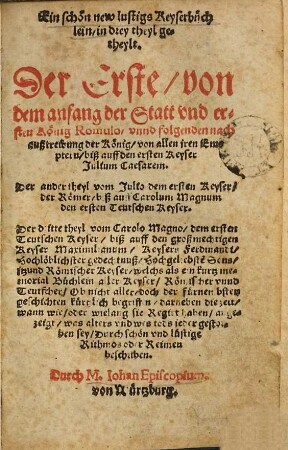 Ein schön new lustigs Keyserbüch
lein/ in drey theyl ge-
theylt.
Der Erste/ von
dem anfang der Statt vnd er-
sten König Romulo/ vnnd folgenden nach
außtreibung der König/ von allen jren Em-
ptern/ biß auff den ersten Keyser
Julium Caesarem.
Der ander theyl vom Julio dem ersten Keyser/
der Römer/ biß auff Carolum Magnum
den ersten Teutschen Keyser.
Der dritte theyl vom Carolo Magno/ dem ersten
Teutschen Keyser/ biß auff den großmechtigen
Keyser Maximilianum/ Keysers Ferdinandi/
Hochlöblichster gedechtnuß/ Hochgeliebste
vnd Römischer Keyser/ welchs als ein kurtz me-
morial Büchlein aller Keyser/ Römischer vnnd
Teutscher/ Ob nicht aller/ doch der fürnembsten
geschichten kürtzlich begriffen/ darneben die zeit/
wann wie/ oder wielang sie Regirt haben/ ange-
zeigt/ was alters vnd was tods jeder gestor-
ben sey/ Durch schön vnd lüstige
Rithmos oder Reimen
beschriben.
Durch M. Johan Episcopium
von Würtzburg.